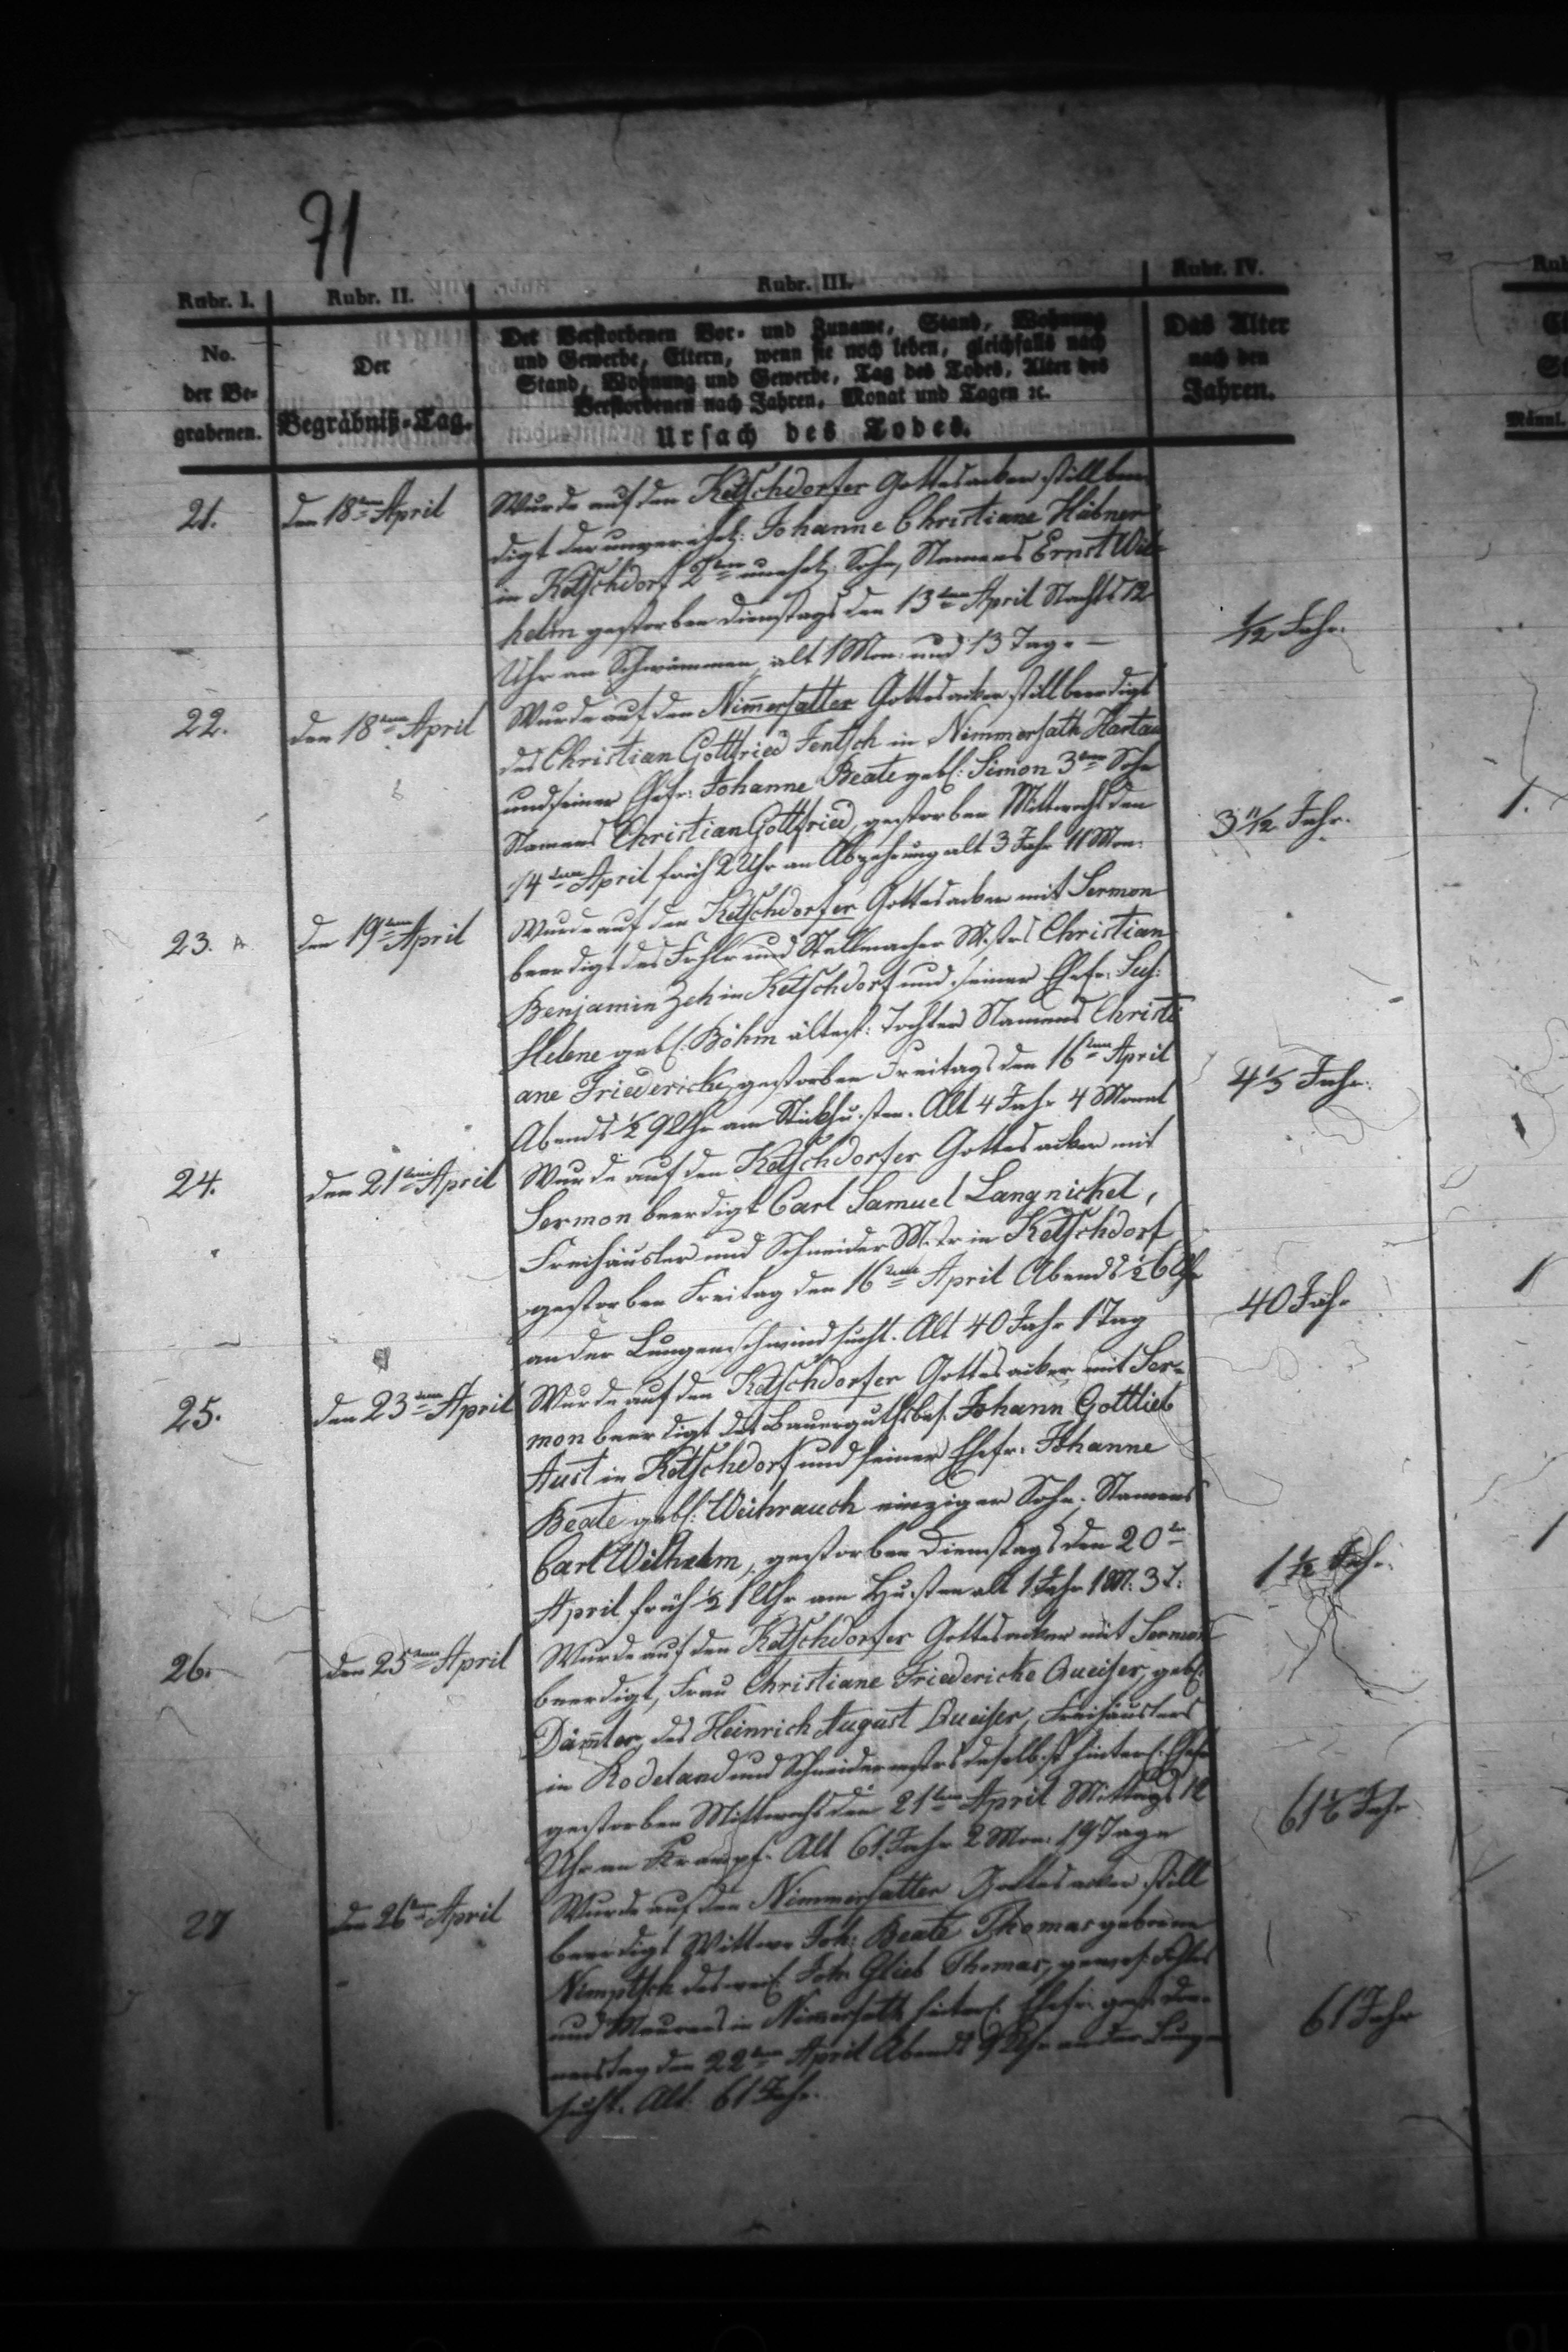 71
Rubr. I. Rubr. II. Rubr. III. Rubr. IV.
No. der Be- grabenen.
Der Begräbniß-Tag.
Der Verstorbenen Vor- und Zuname, Stand, Wohnung
und Gewerbe, Eltern, wenn sie noch leben, gleichfalls nach
Stand, Wohnung und Gewerbe, Tag des Todes, Alter des
Verstorbenen nach Jahren, Monat und Tagen ꝛc.
Ursach des Todes.
Das Alter
nach den
Jahren.
Männl.
21. den 18ten April
Wurde auf den Ketschdorfer Gottesacker still beer-
digt der unverehel: Johanne Christiane Hübner
in Ketschdorf 2ter unehel: Sohn, Namens Ernst Wil-
helm gestorben Dienstags den 13ten April Nachts 12
Uhr an Schwämmen, alt 1 Mon: und 13 Tage. —
1/12 Jahr.
22. den 18ten April
Wurde auf den Nim̄ersatter Gottesacker still beerdigt
des Christian Gottfried Jentsch in Nimmersath Hartau
und seiner Ehefr: Johanne Beate geb: Simon 3ter Sohn
Namens Christian Gottfried, gestorben Mittwochs den
14ten April früh 2 Uhr an Abzehrung alt 3 Jahr 11 Mon:
3 11/12 Jahr.
1.
23. den 19ten April
Wurde auf den Ketschdorfer Gottesacker mit Sermon
beerdigt des Frhlr und Stellmacher Mstrs Christian
Benjamin Zeh in Ketschdorf und seiner Ehefr: Sus:
Helene geb: Böhm ältest: Tochter Namens Christi
ane Friedericke, gestorben Freitags den 16ten April
Abends ½ 9 Uhr am Stickhusten. Alt 4 Jahr 4 Monat
4 1/3 Jahr.
24. den 21ten April
Wurde auf den Ketschdorfer Gottesacker mit
Sermon beerdigt Carl Samuel Langnickel,
Freihäusler und Schneider Mstr in Ketschdorf
gestorben Freitag den 16ten April Abends ½ 6 Uhr
an der Lungenschwindsucht. Alt 40 Jahr 1 Tag
40 Jahr
1
25. den 23ten April
Wurde auf den Ketschdorfer Gottesacker mit Ser-
mon beerdigt des Bauerguthsbes. Johann Gottlieb
Aust in Ketschdorf und seiner Ehefr: Johanne
Beate geb: Weihrauch einziger Sohn: Namens
Carl Wilhelm, gestorben Dienstags den 20ten
April früh ½ 1 Uhr am Husten alt 1 Jahr 1 M: 3 T:
1 1/12 Jahr.
1
26. den 25ten April
Wurde auf den Ketschdorfer Gottesacker mit Sermon
beerdigt, Frau Christiane Friedericke Queißer, geb:
Däm̄ler, des Heinrich August Queißer, Freihäuslers
in Rodeland und Schneidermstrs daselbst hinterl: Ehefr
gestorben Mittwochs den 21ten April Mittags 12
Uhr an Krampf. Alt 61 Jahr 2 Mon: 19 Tage
61 1/6 Jahr
27 den 26ten April
Wurde auf den Nimmersatter Gottesacker still
beerdigt Wittwe Joh: Beate Thomas geborne
Nimptsch des weil: Joh: Glieb Thomas, gewes:
und Maurers in Nimersath hinterl: Ehefr: gest: Don-
nerstag den 22ten April Abends 9 Uhr an der Lungen
sucht. Alt 61 Jahr.
61 Jahr